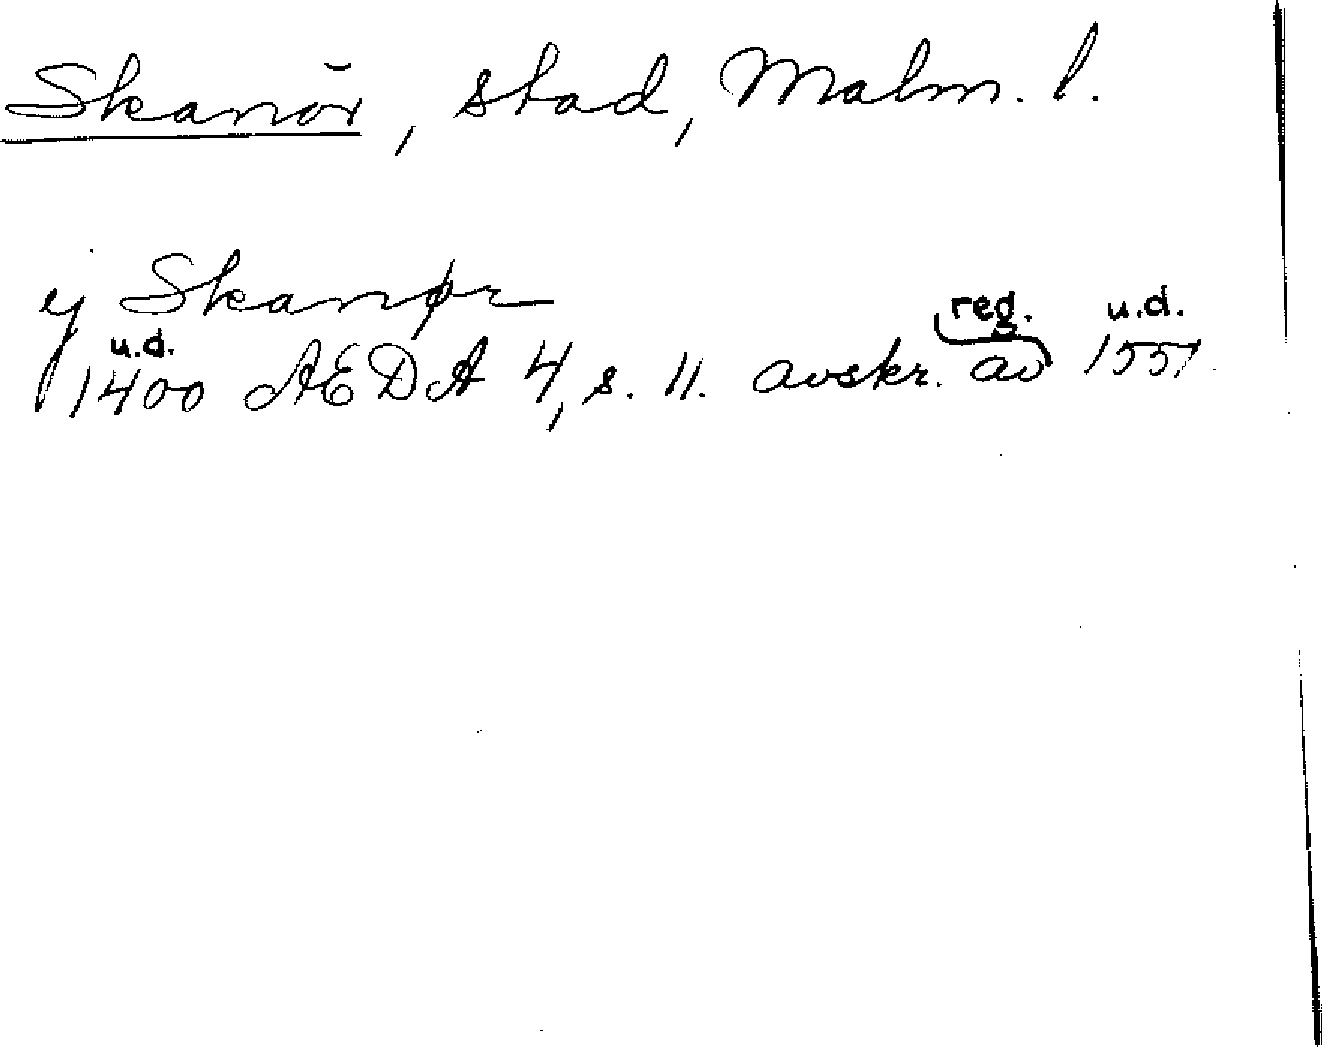 Skanör, stad, Malm. l.
ij Skanør
u.d. reg. u.d.
1400 AEDA 4, s. 11. avskr. av 1551